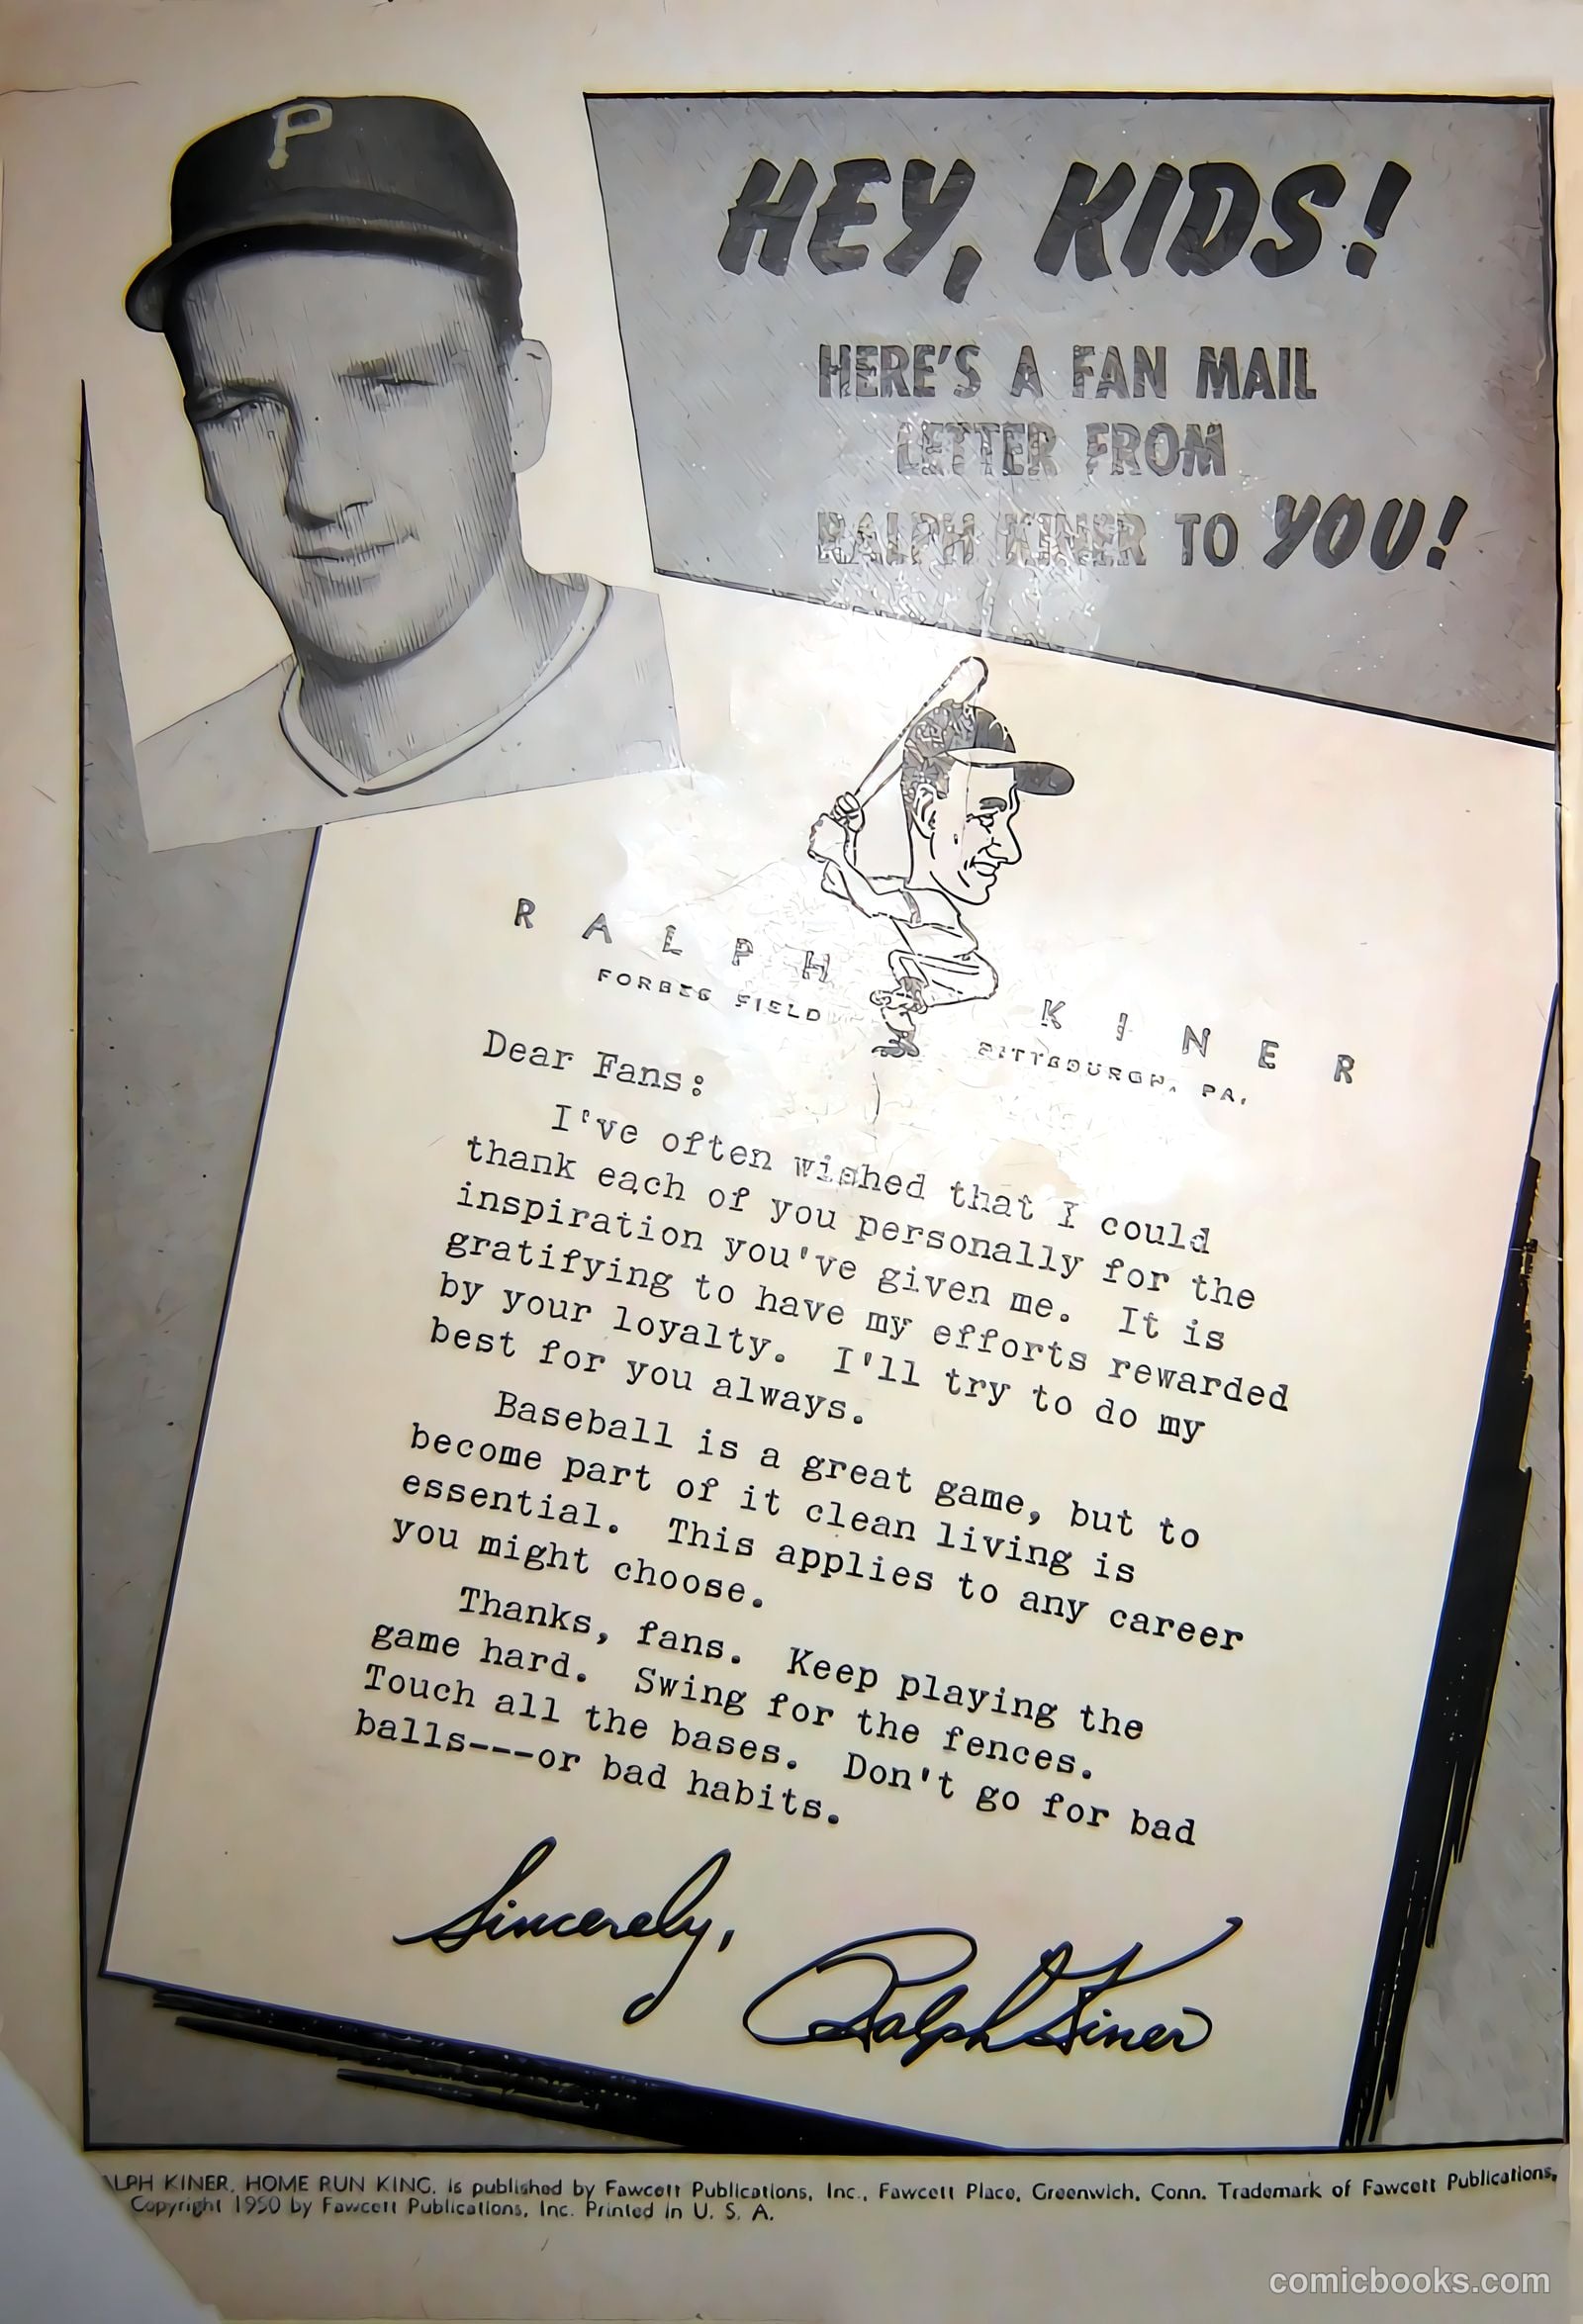 P
HEY, KIDS!
HERE'S A FAN MAIL
LETTER FROM
RALPH KINER TO YOU!
RALPH KINER
FORBES FIELD PITTSBURGH, PA.
Dear Fans:
I've often wished that I could
thank each of you personally for the
inspiration you've given me. It is
gratifying to have my efforts rewarded
by your loyalty. I'll try to do my
best for you always.
Baseball is a great game, but to
become part of it clean living is
essential. This applies to any career
you might choose.
Thanks, fans. Keep playing the
game hard. Swing for the fences.
Touch all the bases. Don't go for bad
balls---or bad habits.
Sincerely,
Ralph Kiner
ALPH KINER, HOME RUN KING, is published by Fawcett Publications, Inc., Fawcett Place, Greenwich, Conn. Trademark of Fawcett Publications,
Copyright 1950 by Fawcett Publications, Inc. Printed in U. S. A.
comicbooks.com